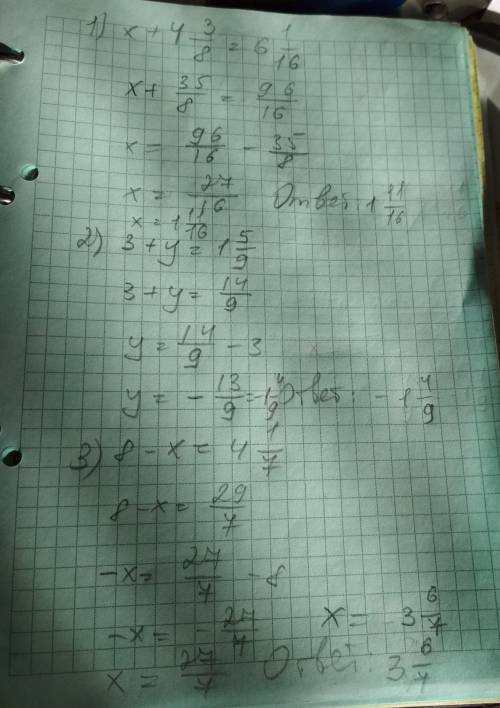 1) x + 4 3/8 = 6 1/16
x + 35/8 = 96/16
x = 96/16 - 35/8
x = 27/16 Ответ: 1 11/16
x = 1 11/16
2) 3 + y = 1 5/9
3 + y = 14/9
y = 14/9 - 3
y = - 13/9 = -1 4/9 Ответ: - 1 4/9
3) 8 - x = 4 1/7
8 - x = 29/7
-x = 27/7 - 8
-x = - 27/7 x = 3 6/7
x = 27/7 Ответ: 3 6/7